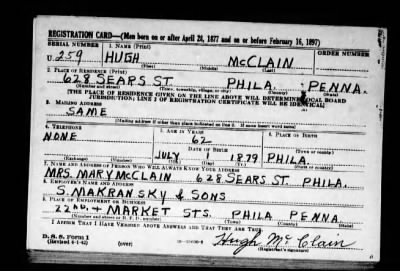 REGISTRATION CARD—(Men born on or after April 28, 1877 and on or before February 16, 1897)
SERIAL NUMBER 1. NAME (Print) ORDER NUMBER
U 259 HUGH McCLAIN
(First) (Middle) (Last)
2. PLACE OF RESIDENCE (Print)
628 SEARS ST. PHILA. PENNA.
(Number and street) (Town, township, village, or city) (County) (State)
[THE PLACE OF RESIDENCE GIVEN ON THE LINE ABOVE WILL DETERMINE LOCAL BOARD
JURISDICTION; LINE 2 OF REGISTRATION CERTIFICATE WILL BE IDENTICAL]
3. MAILING ADDRESS
SAME
[Mailing address if other than place indicated on line 2. If same insert word same]
4. TELEPHONE 5. AGE IN YEARS 6. PLACE OF BIRTH
NONE 62
DATE OF BIRTH (Town or county)
JULY 1 1879 PHILA.
(Exchange) (Number) (Mo.) (Day) (Yr.) (State or country)
7. NAME AND ADDRESS OF PERSON WHO WILL ALWAYS KNOW YOUR ADDRESS
MRS. MARY McCLAIN 628 SEARS ST. PHILA.
8. EMPLOYER'S NAME AND ADDRESS
S. MAKRANSKY & SONS
9. PLACE OF EMPLOYMENT OR BUSINESS
22ND. & MARKET STS. PHILA PENNA.
(Number and street or R. F. D. number) (Town) (County) (State)
I AFFIRM THAT I HAVE VERIFIED ABOVE ANSWERS AND THAT THEY ARE TRUE.
D. S. S. Form 1
(Revised 4-1-42) (over) Hugh McClain
(Registrant's signature)